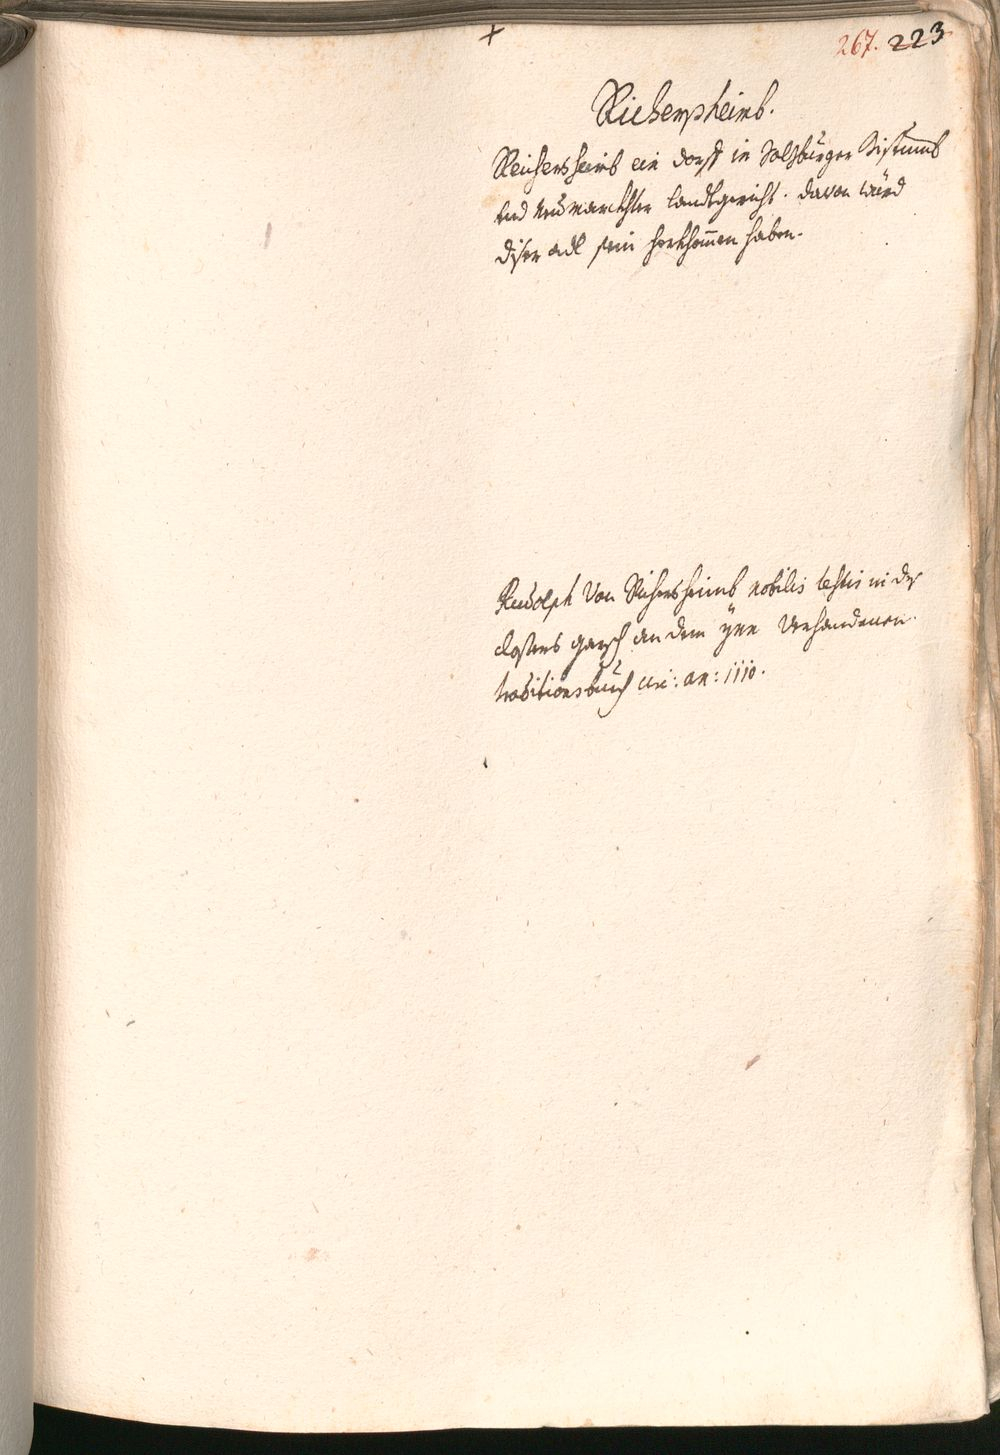 +
267. 223
Richersheimb.
Reichersheimb ein dorff in Saltzburger Bistumb
und Neumarckhter landtgericht. davon würd
diser adl sein herkhom̅en haben.
Rudolph Von Richersheimb nobilis testis in des
closters garsch an dem ÿnn Verhandenen
traditionsbuch circ: an: 1110.